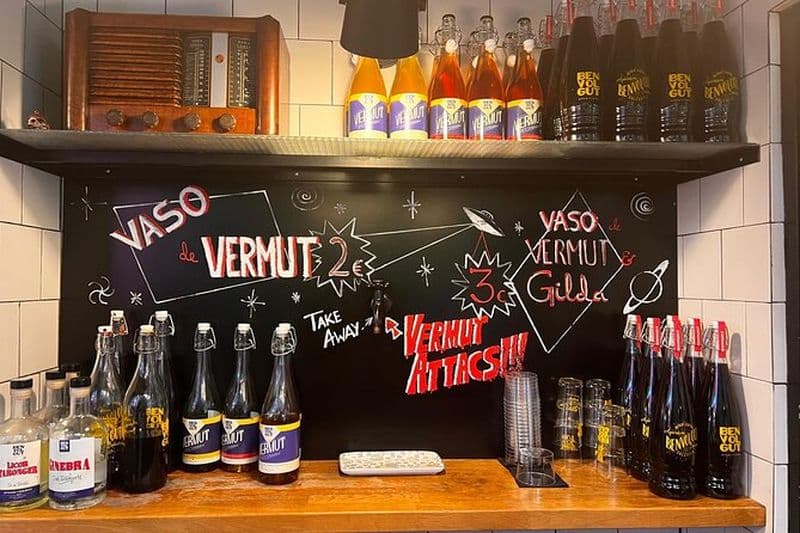 VERMUT
VERMUT
VERMUT
VERMUT
VERMUT
BEN
VOL
GUT
BENVOLGUT
BEN
VOL
GUT
BENVOLGUT
VASO
de VERMUT 2€
VASO de
VERMUT &
Gilda
3€
TAKE
AWAY
VERMUT
ATTACS!!!
LICOR
GINEBRA
VERMUT
VERMUT
VERMUT
BEN
VOL
GUT